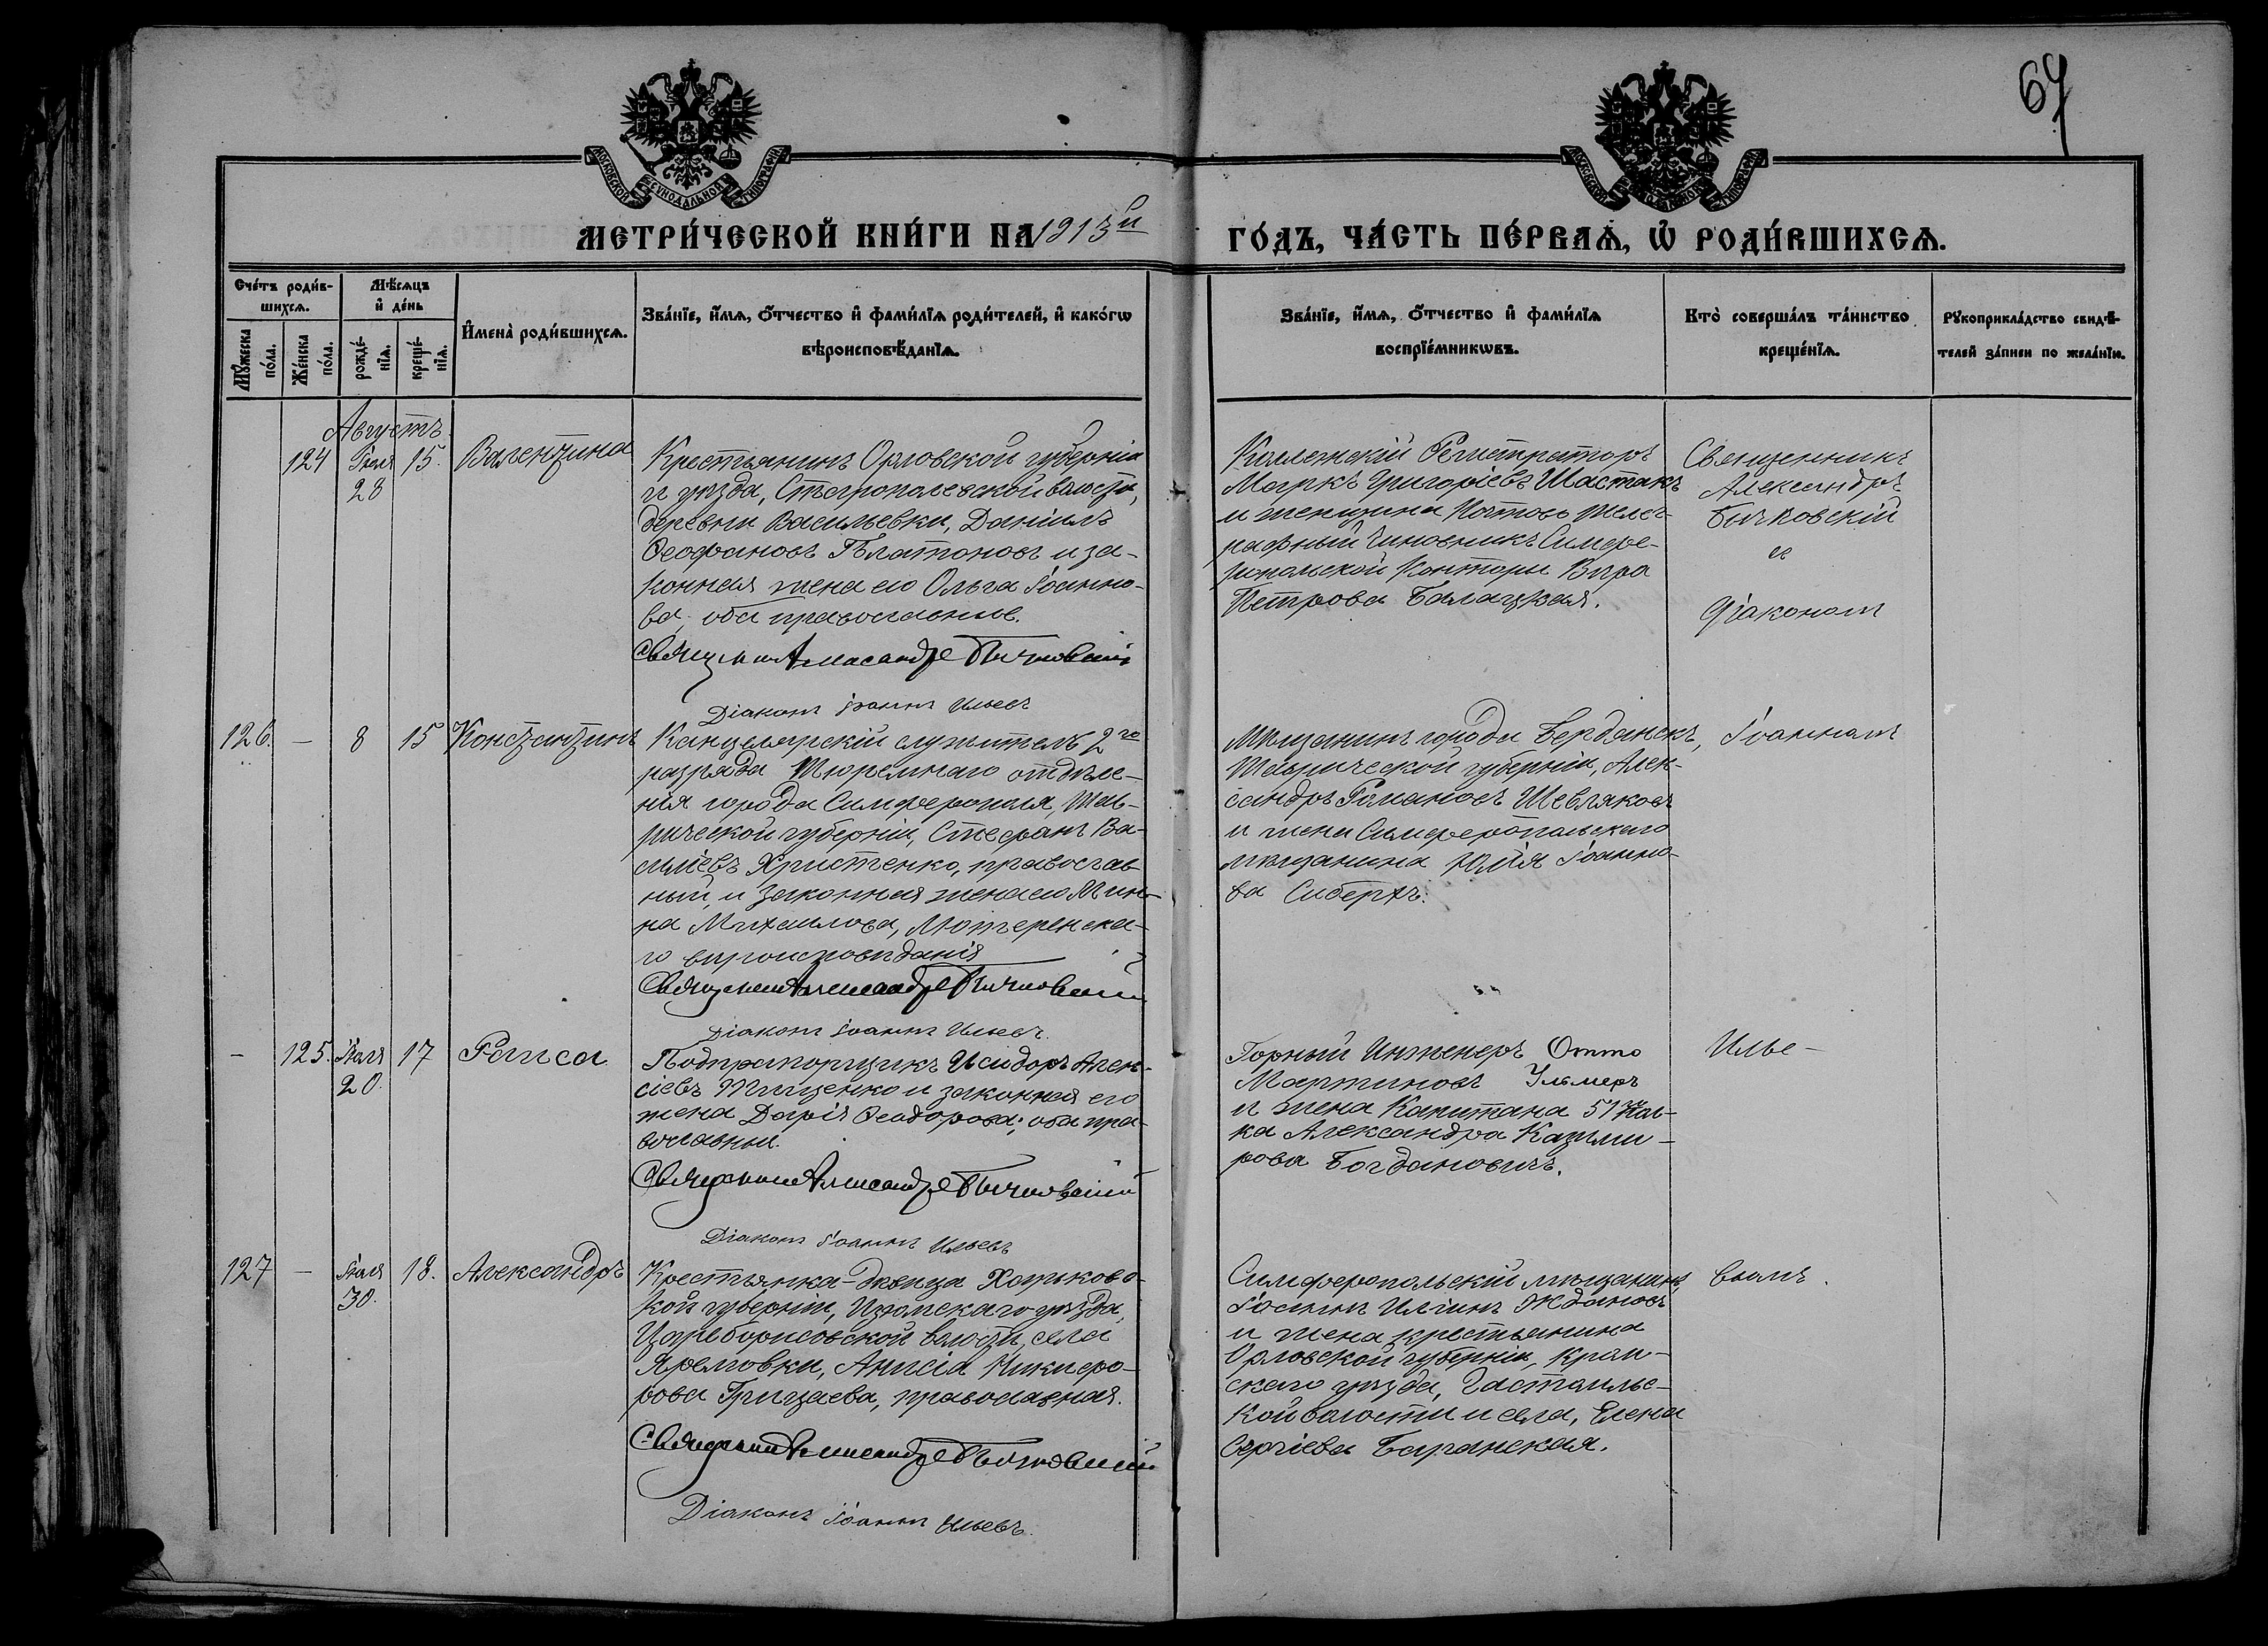 67
МОСКОВСКОЙ СѴНОДАЛЬНОЙ ТИПОГРАФІИ
МОСКОВСКОЙ СѴНОДАЛЬНОЙ ТИПОГРАФІИ
МЕТРИ́ЧЕСКОЙ КНИ́ГИ НА 1913й
ГО́ДЪ, ЧА́СТЬ ПЕ́РВАѦ, Ѡ҆ РОДИ́ВШИХСѦ.
Сче́тъ роди́в-
шихсѧ.
Мꙋ́жеска
по́ла.
Же́нска
по́ла.
Мѣ́сѧцъ
и҆ де́нь
рожде́-
нїѧ.
креще́-
нїѧ.
И҆мена̀ роди́вшихсѧ.
Зва́нїе, и҆́мѧ, ѻ҆́тчество и҆ фами́лїѧ роди́телей, и҆ како́гѡ
вѣроисповѣ́данїѧ.
Зва́нїе, и҆́мѧ, ѻ҆́тчество и҆ фами́лїѧ
воспрїе́мникѡвъ.
Кто̀ соверша́лъ та́инство
креще́нїѧ.
Рꙋкоприкла́дство свидѣ́-
телей за́писи по жела́нїю.
Августъ
124
Іюля
28
15.
Валентина
Крестьянинъ Орловской губерніи
и уѣзда, Старопольской волости,
деревни Васильевки, Даніилъ
Ѳеофановъ Платоновъ и за-
конная жена его Ольга Іоанно-
ва; оба православные.
Священникъ Александръ Бычковскій
Діаконъ Іоаннъ Ильевъ
Коллежскій Регистраторъ
Маркъ Григоріевъ Шастакъ
и женщина Почтово телег-
рафный Чиновникъ Симфе-
ропольской Конторы Вѣра
Петрова Балацкая.
Священникъ
Александръ
Бычковскій
съ
Діакономъ
126.
—
8
15
Константинъ
Канцелярскій служитель 2го
разряда Тюремнаго отдѣле-
нія города Симферополя, Тав-
рической губерніи, Стефанъ Ва-
силіевъ Христенко, православ-
ный, и законная жена его Мин-
на Михаилова, Лютеренска-
го вѣроисповѣданія
Священникъ Александръ Бычковскій
Діаконъ Іоаннъ Ильевъ
Мѣщанинъ города Бердянскъ,
Таврической губерніи, Алек-
сандръ Романовъ Шевляковъ
и жена Симферопольскаго
мѣщанина Юлія Іоанно-
ва Сибертъ.
Іоанномъ
—
125.
Іюля
20.
17
Раиса
Подпрапорщикъ Исидоръ Алек-
сіевъ Тищенко и законная его
жена Дарія Ѳеодорова; оба пра-
вославные.
Священникъ Александръ Бычковскій
Діаконъ Іоаннъ Ильевъ
Горный Инженеръ Отто
Мартиновъ Ульмеръ
и жена Капитана 51го пол-
ка Александра Казими-
рова Богдановичъ.
Илье-
127
—
Іюля
30.
18.
Александръ
Крестьянка-дѣвица Харьковс-
кой губерніи, Изюмскаго уѣзда,
Цареборисовской волости, села
Яремовки, Анисія Никифо-
рова Грицаева, православная.
Священникъ Александръ Бычковскій
Діаконъ Іоаннъ Ильевъ.
Симферопольскій мѣщанинъ
Іоаннъ Иліинъ Ждановъ
и жена крестьянина
Орловской губерніи, Кром-
скаго уѣзда, Гастомльс-
кой волости и села, Елена
Сергіева Баранская.
вымъ.